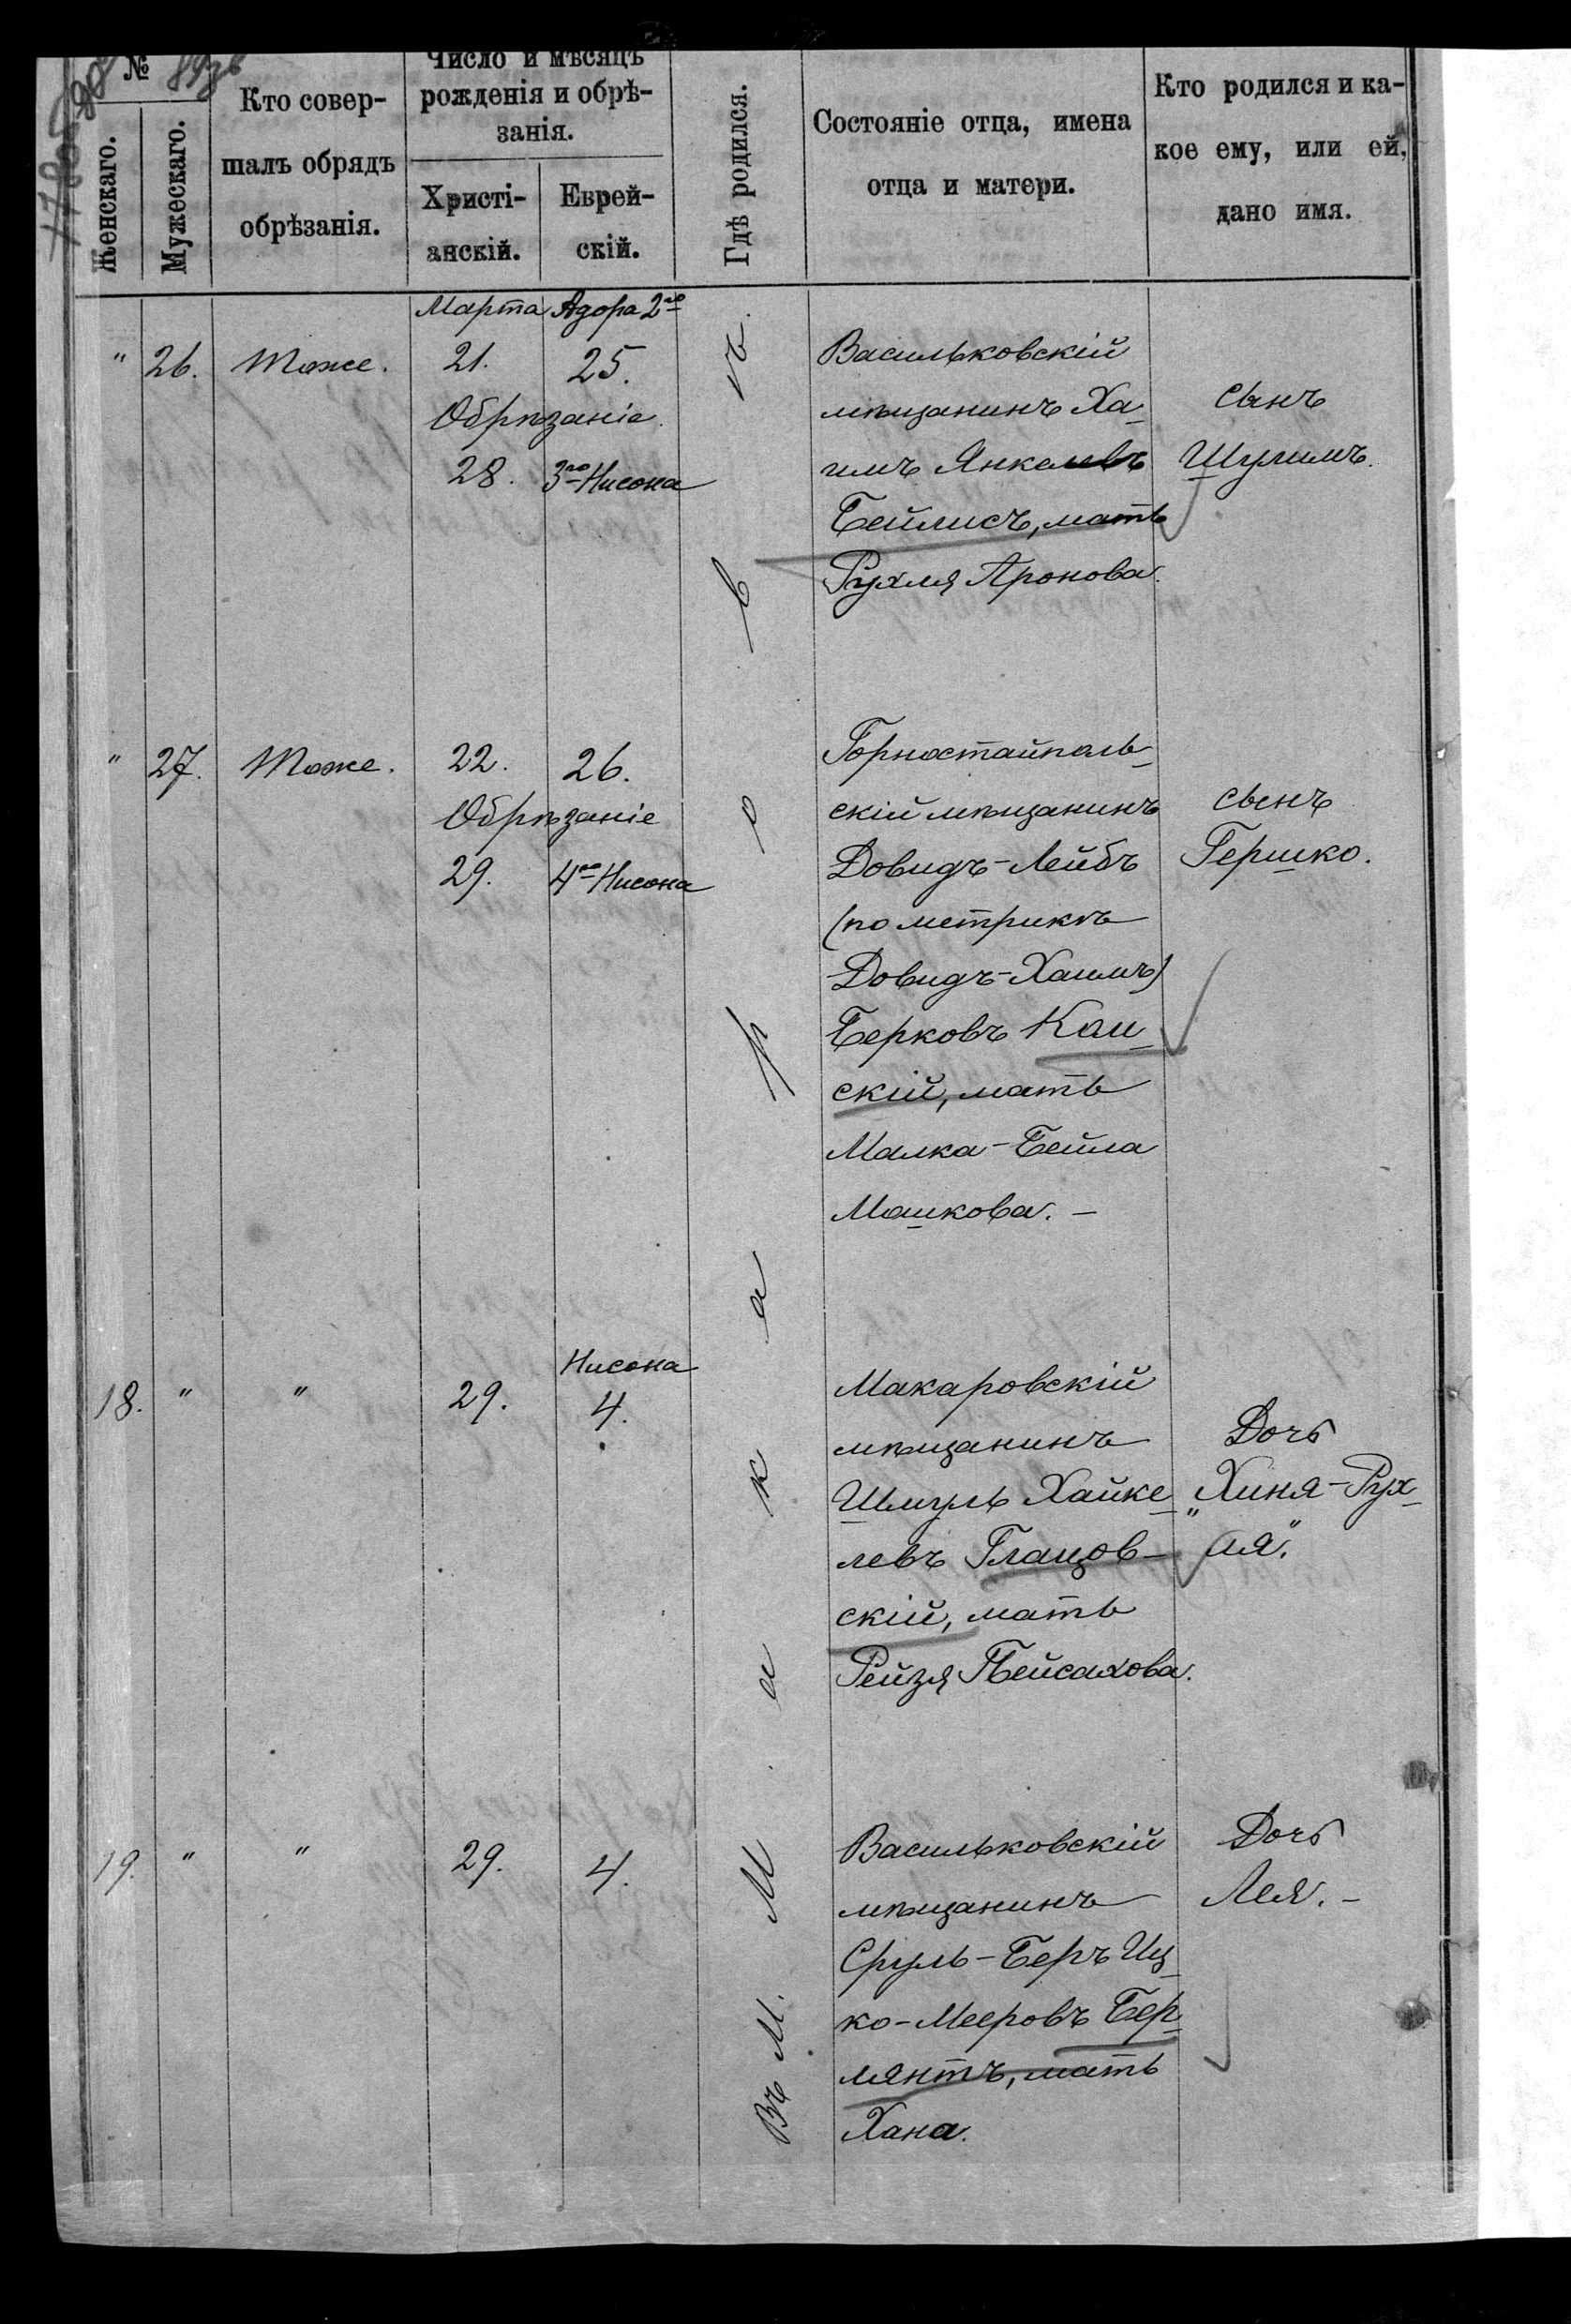 №
Женскаго.
Мужескаго.
Кто совер-
шалъ обрядъ
обрѣзанія.
Число и мѣсяцъ
рожденія и обрѣ-
занія.
Христі-
анскій.
Еврей-
скій.
Гдѣ родился.
Состояніе отца, имена
отца и матери.
Кто родился и ка-
кое ему, или ей,
дано имя.
Въ М. Макаровъ.
Марта Адора 2го
" 26. Тоже. 21. 25.
Обрѣзаніе
28. 3го Нисона
Васильковскій
мѣщанинъ Ха-
имъ Янкелевъ
Бейлисъ, мать
Рухля Аронова.
сынъ
Шулимъ.
" 27. Тоже. 22. 26.
Обрѣзаніе
29. 4го Нисона
Горностайполь-
скій мѣщанинъ
Довидъ-Лейбъ
(по метрикѣ
Довидъ-Хаимъ)
Берковъ Кан-
скій, мать
Малка-Бейла
Машкова. -
сынъ
Гершко.
Нисона
18. " " 29. 4.
Макаровскій
мѣщанинъ
Шмуль Хайке-
левъ Гланцов-
скій, мать
Рейзя Пейсахова.
Дочь
„Хиня-Рух-
ля".
19. " " 29. 4.
Васильковскій
мѣщанинъ
Сруль-Беръ Иц-
ко-Мееровъ Бер-
лянтъ, мать
Хана.
Дочь
Лея. -